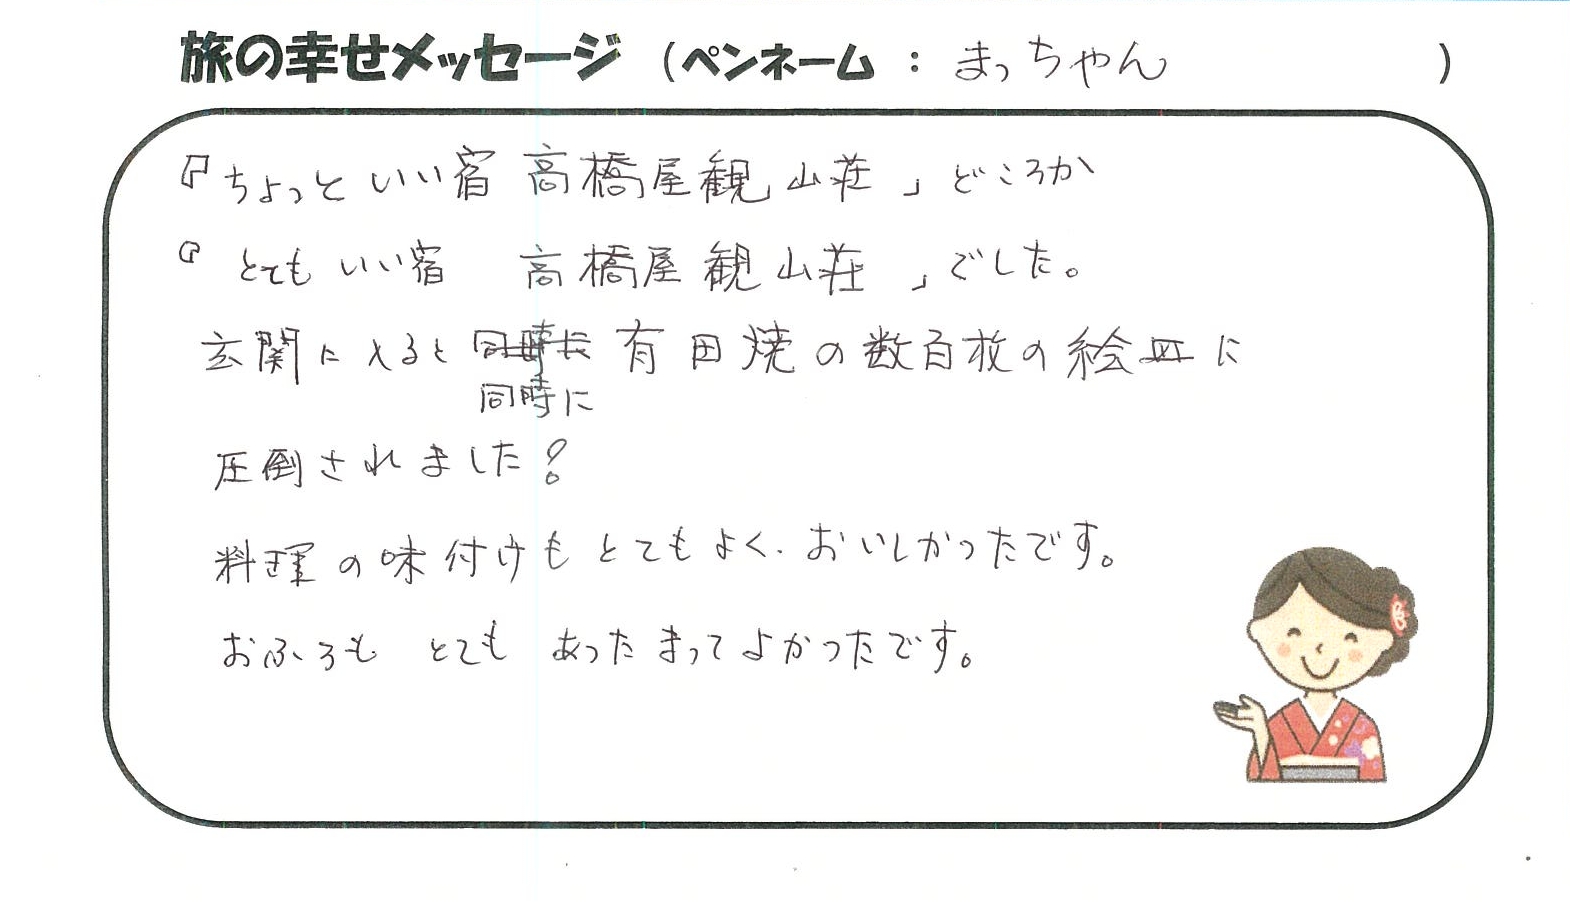 旅の幸せメッセージ (ペンネーム : まっちゃん )
『ちょっといい宿 高橋屋観山荘」どころか
『とても いい宿 高橋屋観山荘」でした。
玄関に入ると 同時に 有田焼の数百枚の絵皿に
同時に
圧倒されました!
料理の味付けもとてもよく、おいしかったです。
おふろも とても あったまってよかったです。